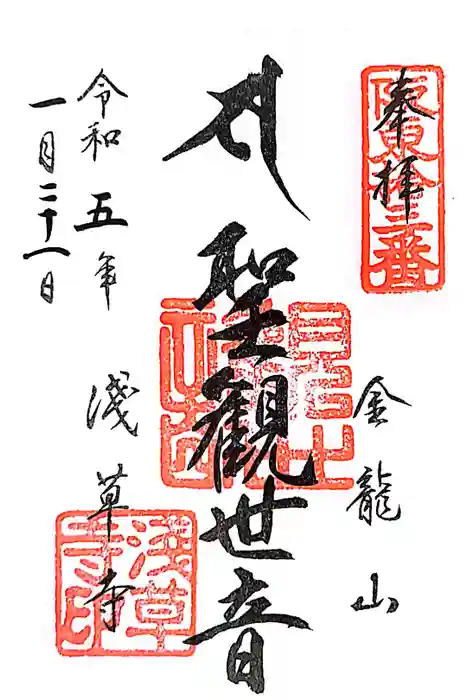 奉拝
坂東拾三番
金龍山
聖観世音
浅草寺
令和五年
一月二十一日
浅草寺印